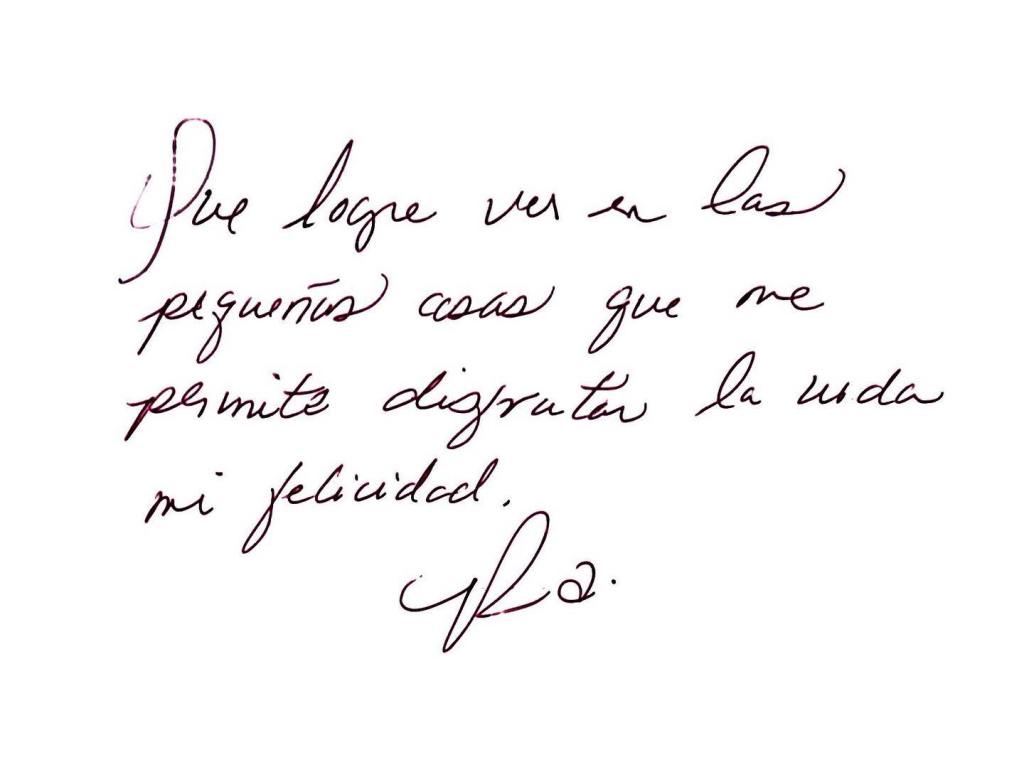 Que logre ver en las
pequeñas cosas que me
permite disfrutar la vida
mi felicidad.